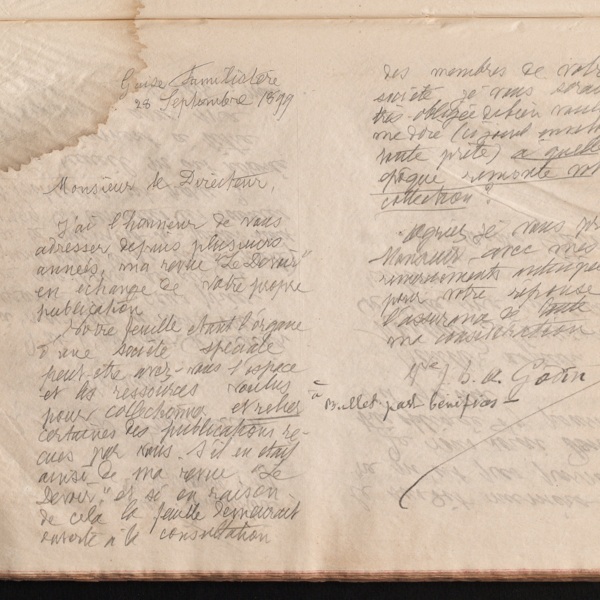 Guise Familistère
28 Septembre 1899
Monsieur le Directeur,
J'ai l'honneur de vous
adresser, depuis plusieurs
années, ma revue "Le Devoir"
en échange de votre propre
publication
Votre feuille étant l'organe
d'une société spéciale
peut-être avez-vous l'espace
et les ressources voulus
pour collectionner et relier
certaines des publications re-
çues par vous. S'il en était
ainsi de ma revue "Le
Devoir" et si en raison
de cela la feuille demeurait
ouverte à la consultation
des membres de votre
société, je vous serais
très obligée de bien vouloir
me dire
toute prête) à quelle
époque remonte
collection ?
Agréez, je vous
Monsieur, avec mes
remerciements anticipés
pour votre réponse
l'assurance de toute
ma considération
Vve J. B. A. Godin
à
Billet part bénéfices